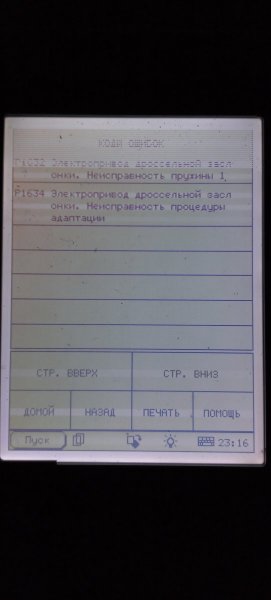 КОДЫ ОШИБОК
P1632 Электропривод дроссельной засл
онки. Неисправность пружины 1
P1634 Электропривод дроссельной засл
онки. Неисправность процедуры
адаптации
СТР. ВВЕРХ
СТР. ВНИЗ
ДОМОЙ
НАЗАД
ПЕЧАТЬ
ПОМОЩЬ
Пуск
23:16